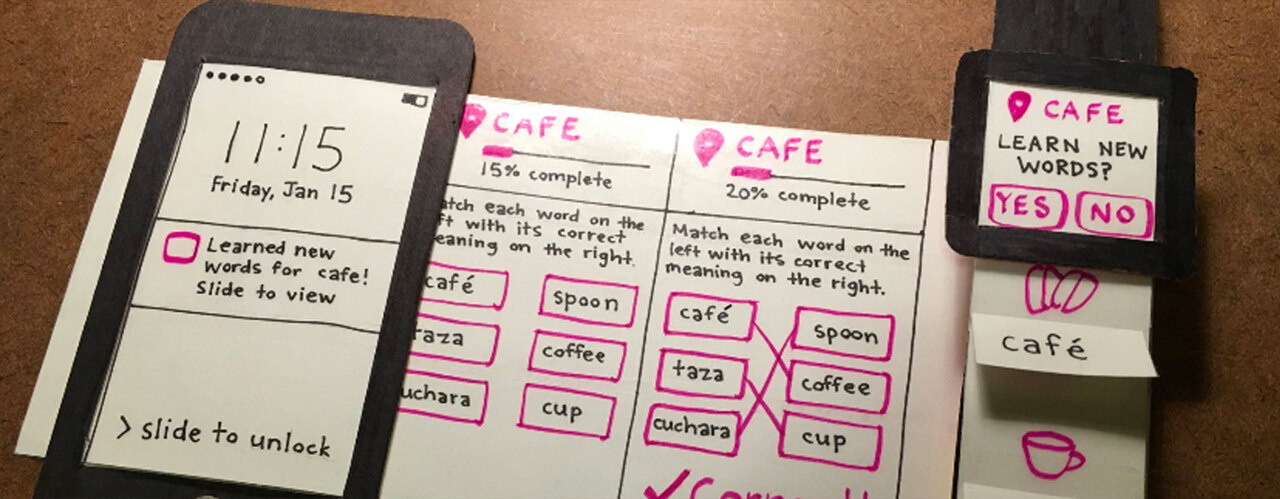 11:15
Friday, Jan 15
Learned new
words for cafe!
Slide to view
> slide to unlock
CAFE
15% complete
each word on the
with its correct
meaning on the right.
café
spoon
taza
coffee
cuchara
cup
CAFE
20% complete
Match each word on the
left with its correct
meaning on the right.
café
spoon
taza
coffee
cuchara
cup
CAFE
LEARN NEW
WORDS?
YES
NO
café